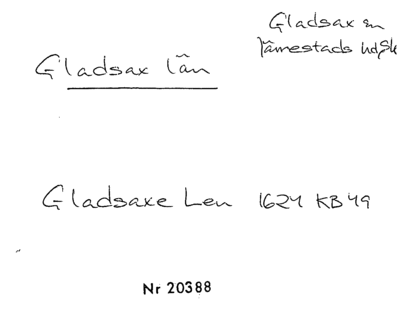 Gladsax sn
Järrestads hd Sk
Gladsax län
Gladsaxe Len 1624 KB 49
Nr 20388